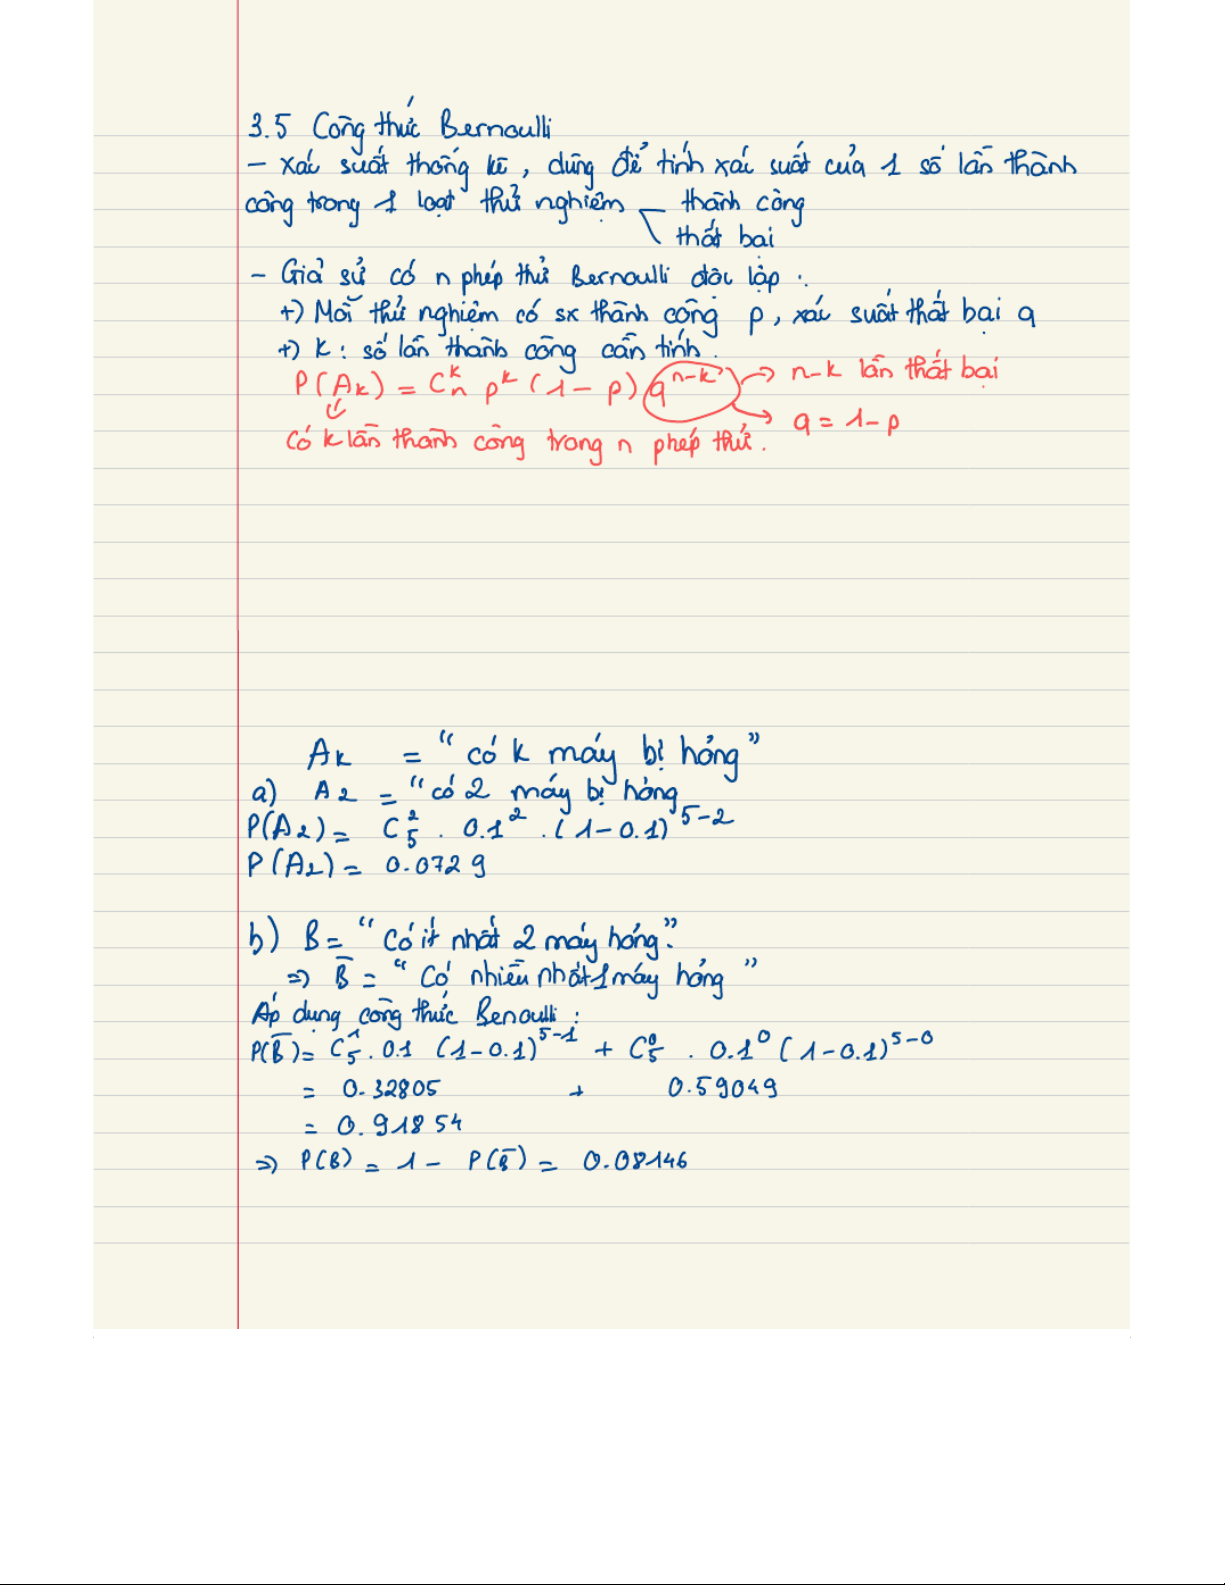 3.5 Công thức Bernoulli
- xác suất thống kê, dùng để tính xác suất của 1 số lần thành
công trong 1 loạt thử nghiệm thành công
thất bại
- Giả sử có n phép thử Bernoulli độc lập :
+) Mỗi thử nghiệm có sx thành công p, xác suất thất bại q
+) k : số lần thành công cần tính.
P(A_k) = C_n^k p^k (1-p) q^{n-k} → n-k lần thất bại
→ q = 1-p
có k lần thành công trong n phép thử.
A_k = "có k máy bị hỏng"
a) A_2 = "có 2 máy bị hỏng
P(A_2) = C_5^2 . 0.1^2 . (1-0.1)^{5-2}
P(A_2) = 0.0729
b) B = "Có ít nhất 2 máy hỏng".
⇒ B̅ = "Có nhiều nhất 1 máy hỏng"
Áp dụng công thức Benoulli :
P(B̅) = C_5^1 . 0.1 (1-0.1)^{5-1} + C_5^0 . 0.1^0 (1-0.1)^{5-0}
= 0.32805 + 0.59049
= 0.91854
⇒ P(B) = 1 - P(B̅) = 0.08146